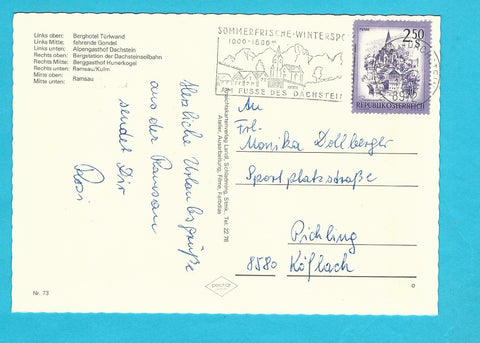 Links oben: Berghotel Türlwand
Links Mitte: fahrende Gondel
Links unten: Alpengasthof Dachstein
Rechts oben: Bergstation der Dachsteinseilbahn
Rechts Mitte: Berggasthof Hunerkogel
Rechts unten: Ramsau/Kulm
Mitte oben:
Mitte unten: Ramsau
SOMMERFRISCHE-WINTERSPO
1000-1800m
AM FUSSE DES DACHSTEIN
2.50
REPUBLIK ÖSTERREICH
Herzliche Urlaubsgrüße
aus der Ramsau
sendet Dir
Rosi
Ansichtskartenverlag Landl, Schladming, Stmk., Tel. 22 78
Atelier, Ausarbeitung, Filme, Fotodias
An
Frl.
Monika Dollberger
Sportplatzstraße
Pichling
8580 Köflach
Nr. 73